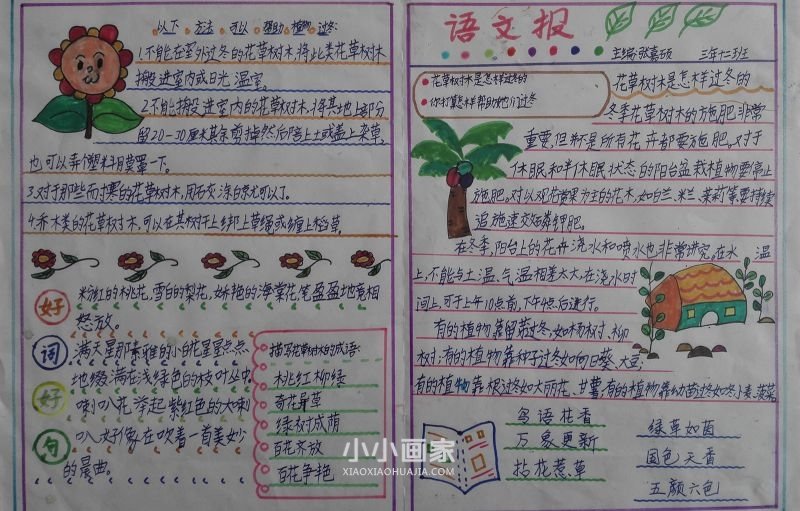 以下 方法 可以 帮助 植物 过冬:
1.不能在室外过冬的花草树木,将此类花草树木
搬进室内或日光温室。
2.不能搬进室内的花草树木,将其地上部分
留20-30厘米其余剪掉然后培上土或盖上杂草,
也可以弄个塑料用膜罩一下。
3.对于那些耐寒的花草树木,用石灰涂白就可以了。
4.乔木类的花草树木,可以在其树干上绑上草绳或缠上稻草。
好词好句
粉红的桃花,雪白的梨花,娇艳的海棠花,笑盈盈地竞相
怒放。
满天星那素雅的小白花星星点点
地缀满在浅绿色的枝叶丛中
喇叭花举起紫红色的大喇
叭,好像在吹着一首美妙
的晨曲。
描写花草树木的成语:
桃红柳绿
奇花异草
绿树成荫
百花齐放
百花争艳
语文报
主编:张嘉硕 三年十二班
花草树木是怎样过冬的
你打算怎样帮助她们过冬
花草树木是怎样过冬的
冬季花草树木的施肥非常
重要,但不是所有花卉都要施肥。对于
休眠和半休眠状态的阳台盆栽植物要停止
施肥。对以观花赏果为主的花木,如白兰、米兰、茉莉等要持续
追施速效磷钾肥。
在冬季,阳台上的花卉浇水和喷水也非常讲究。在水温
上,不能与土温、气温相差太大,在浇水时
间上,可于上午10点前,下午4点后进行。
有的植物靠留茎过冬,如杨树、柳
树;有的植物靠种子过冬如向日葵、大豆;
有的植物靠根过冬如大丽花、甘薯;有的植物靠幼苗过冬如冬小麦、菠菜
鸟语花香
万象更新
拈花惹草
绿草如茵
国色天香
五颜六色
小小画家
XIAOXIAOHUAJIA.COM